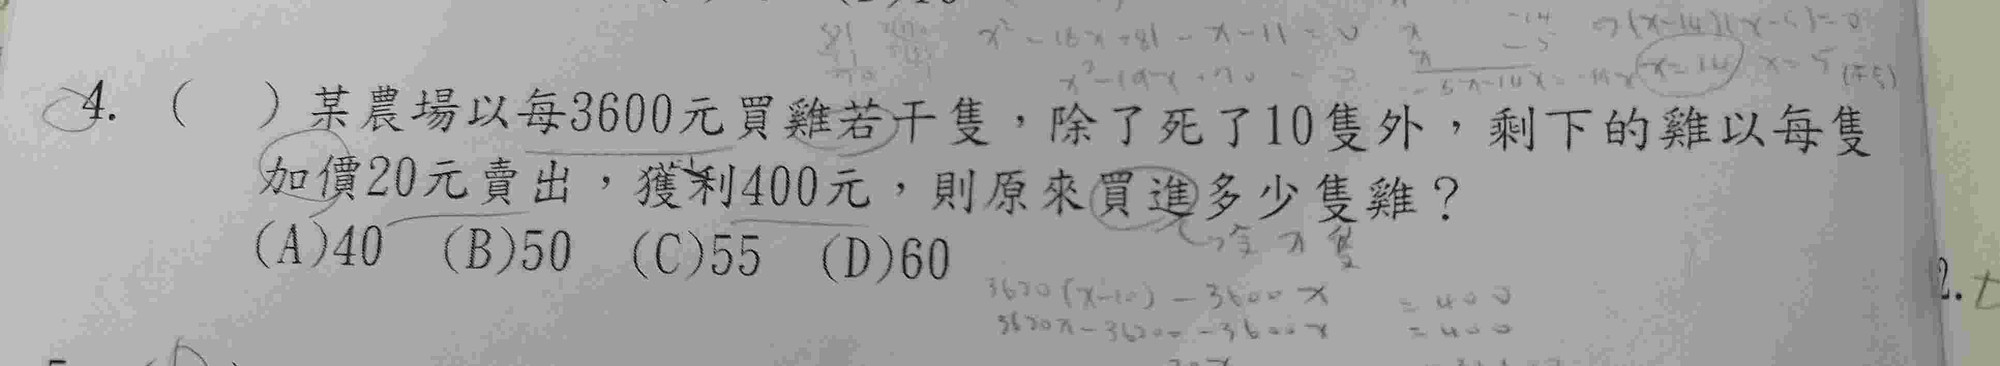 x²-18x+81-x-11=0
(x-14)(x-5)=0
x²-19x+70=0
x=14 x=5
4. ( )某農場以每3600元買雞若干隻,除了死了10隻外,剩下的雞以每隻
加價20元賣出,獲利400元,則原來買進多少隻雞?
(A)40 (B)50 (C)55 (D)60
令x隻
3620(x-10)-3600x =400
3620x-36200-3600x =400
2.